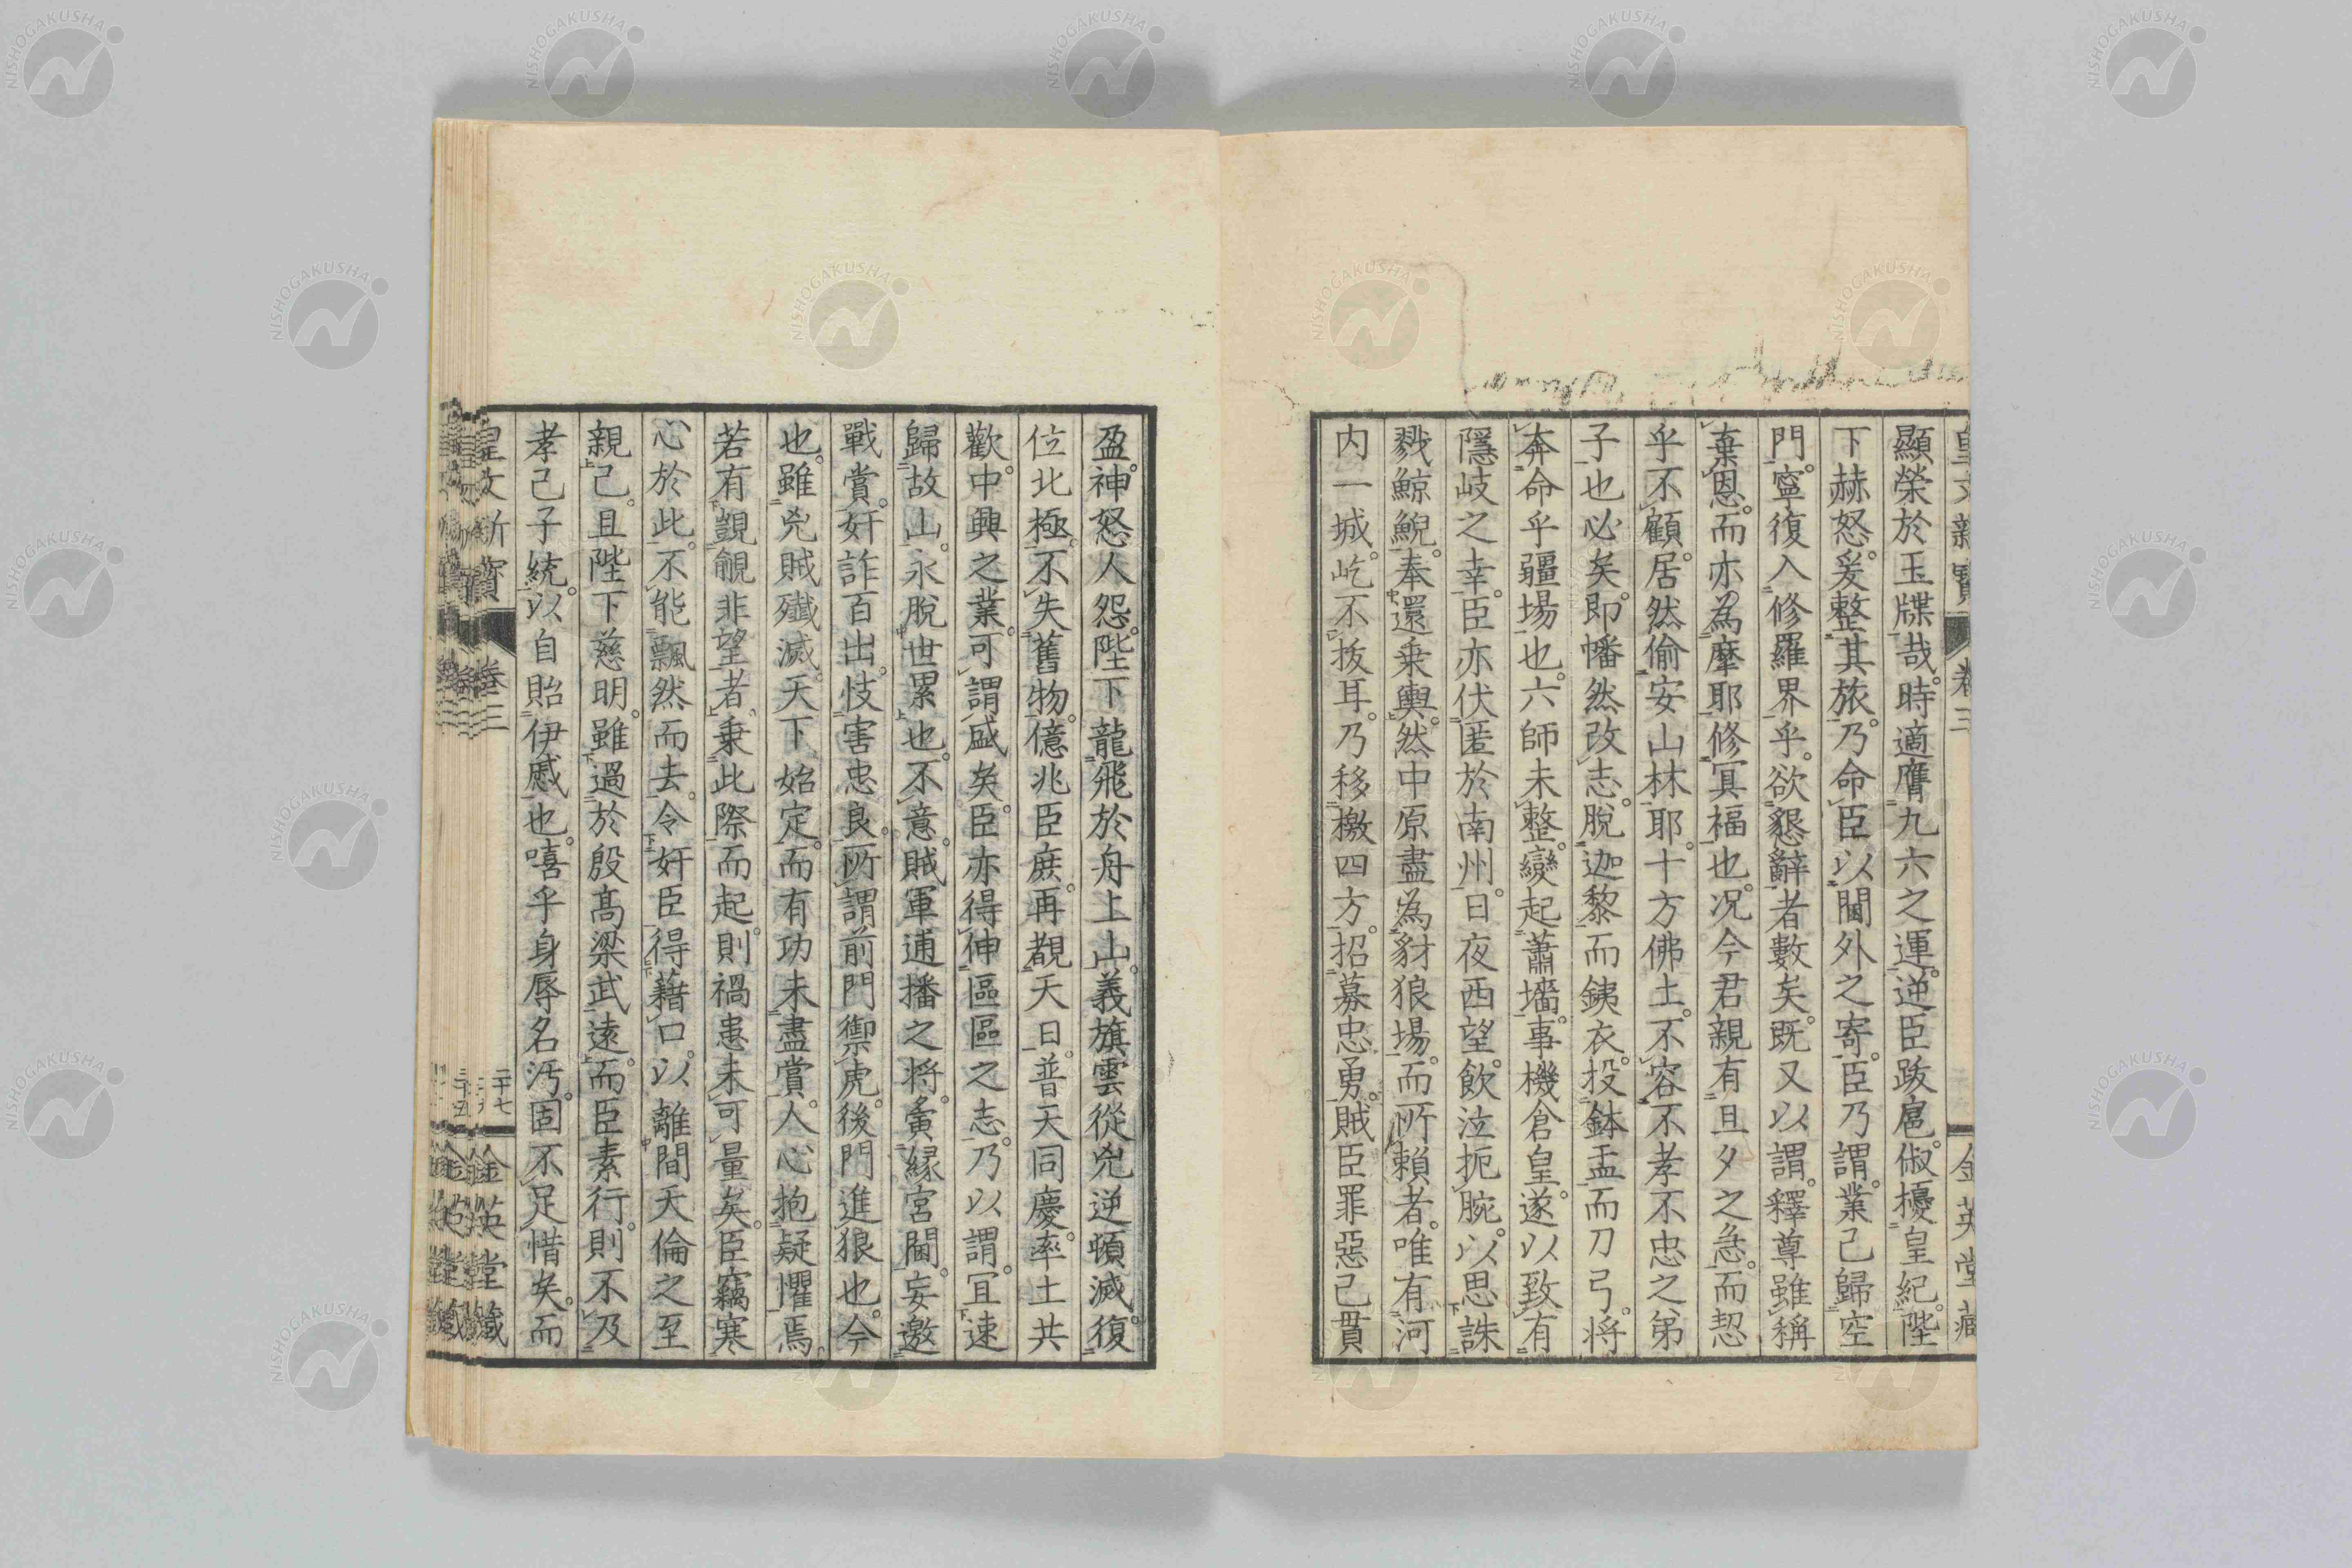 顯榮於玉牒哉。時適膺九六之運。逆臣跋扈。俶擾皇紀。陛
下赫怒。爰整其旅。乃命臣以閫外之寄。臣乃謂。業已歸空
門。寧復入修羅界乎。欲懇辭者數矣。既又以謂。釋尊雖稱
棄恩。而亦為摩耶修冥福也。况今君親有旦夕之急。而恝
乎不顧。居然偷安山林耶。十方佛土。不容不孝不忠之弟
子也必矣。即幡然改志。脫迦黎而鐵衣。投鉢盂而刀弓。將
奔命乎疆場也。六師未整。變起蕭墻。事機倉皇。遂以致有
隱岐之幸。臣亦伏匿於南州。日夜西望。飲泣扼腕。以思誅
戮鯨鯢。奉還乗輿。然中原盡為豺狼場。而所賴者。唯有河
内一城。屹不拔耳。乃移檄四方。招募忠勇。賊臣罪惡已貫
盈。神怒人怨。陛下龍飛於舟上山。義旗雲從。兇逆頓滅。復
位北極。不失舊物。億兆臣庶。再覩天日。普天同慶。率土共
歡。中興之業。可謂盛矣。臣亦得伸區區之志。乃以謂。宜速
歸故山。永脫世累也。不意。賊軍逋播之將。夤緣宮閫。妄邀
戰賞。奸詐百出。忮害忠良。所謂前門禦虎。後門進狼也。今
也。雖兇賊殲滅。天下始定。而有功未盡賞。人心抱疑懼焉。
若有覬覦非望者。乗此際而起。則禍患未可量矣。臣竊寒
心於此。不能飄然而去。令奸臣得藉口。以離間天倫之至
親已。且陛下慈明。雖過於殷高梁武遠。而臣素行。則不及
孝己子統。以自貽伊慼也。嘻乎身辱名汚。固不足惜矣。而
皇文新寳
卷三
二十七
金英堂藏